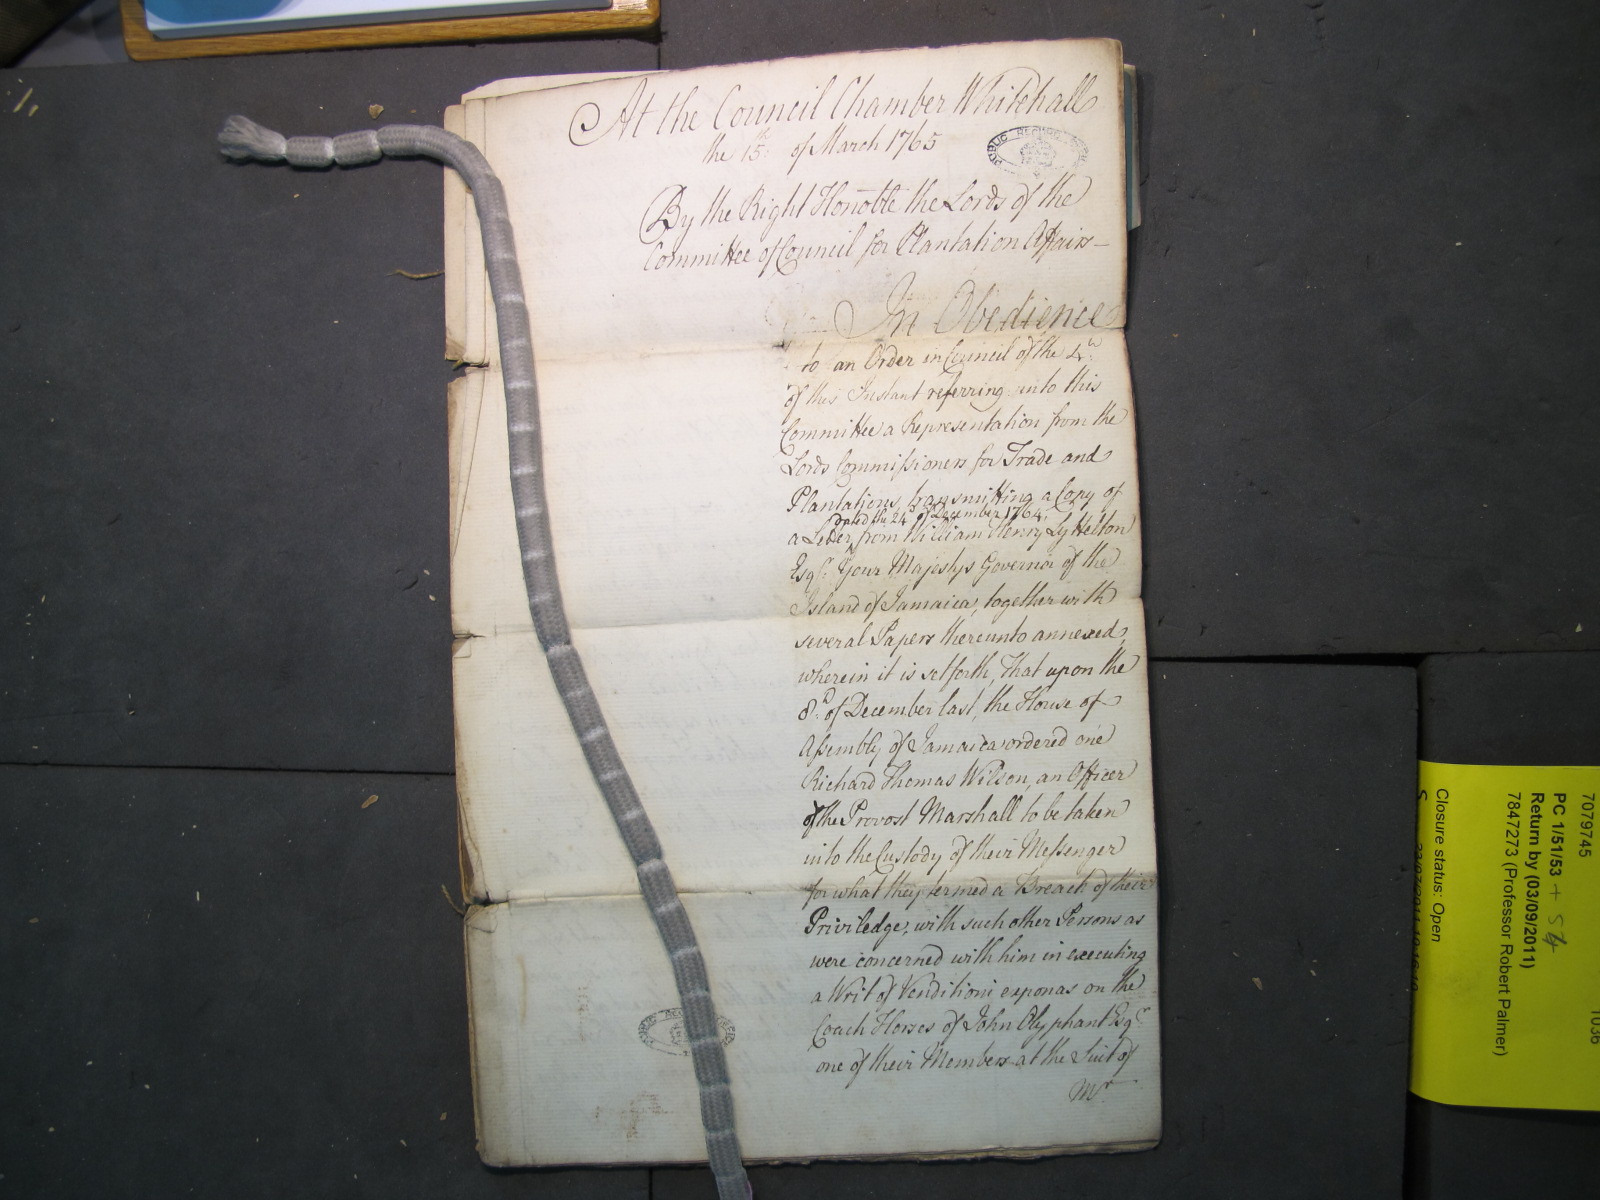 At the Council Chamber Whitehall
the 15th of March 1765
PUBLIC RECORD OFFICE
By the Right Honoble the Lords of the
Committee of Council for Plantation Affairs—
In Obedience
to an Order in Council of the 4th
of this Instant referring unto this
Committee a Representation from the
Lords Commissioners for Trade and
Plantations, transmitting a Copy of
dated the 24th of December 1764,
a Letter from William Henry Lyttelton
Esqr. Your Majestys Governor of the
Island of Jamaica, together with
several Papers thereunto annexed,
wherein it is set forth, That upon the
8th of December last, the House of
Assembly of Jamaica ordered one
Richard Thomas Wilson, an Officer
of the Provost Marshall to be taken
into the Custody of their Messenger
for what they termed a Breach of their
Priviledge, with such other Persons as
were concerned with him in executing
a Writ of Venditioni exponas on the
Coach Horses of John Olyphant Esqr
one of their Members at the Suit of
Mr.
PUBLIC RECORD OFFICE
7079745
PC 1/51/53 + 54
Return by (03/09/2011)
7847273 (Professor Robert Palmer)
Closure status: Open
S
1036